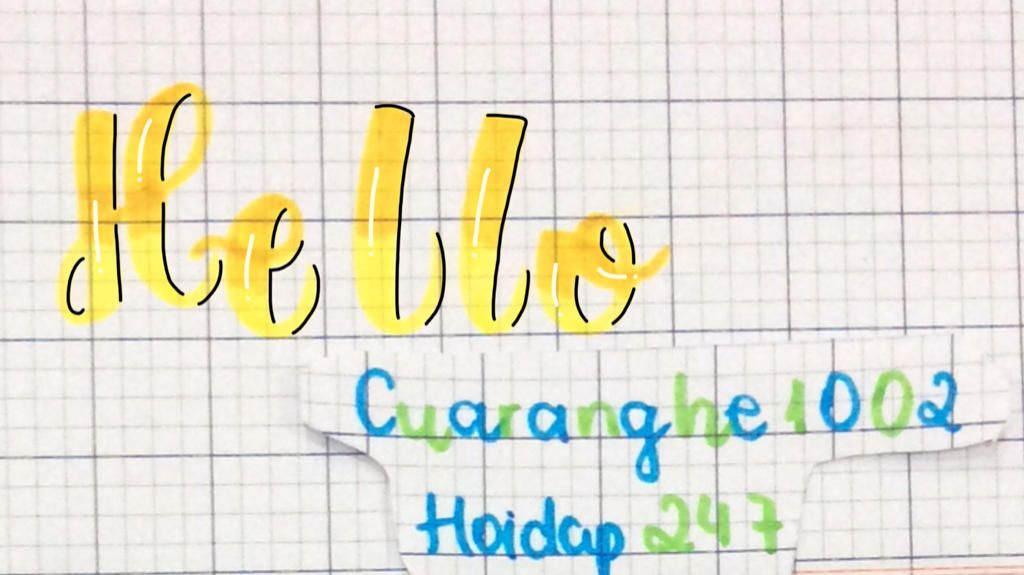 Hello
Cuaranghe1002
Hoidap 247